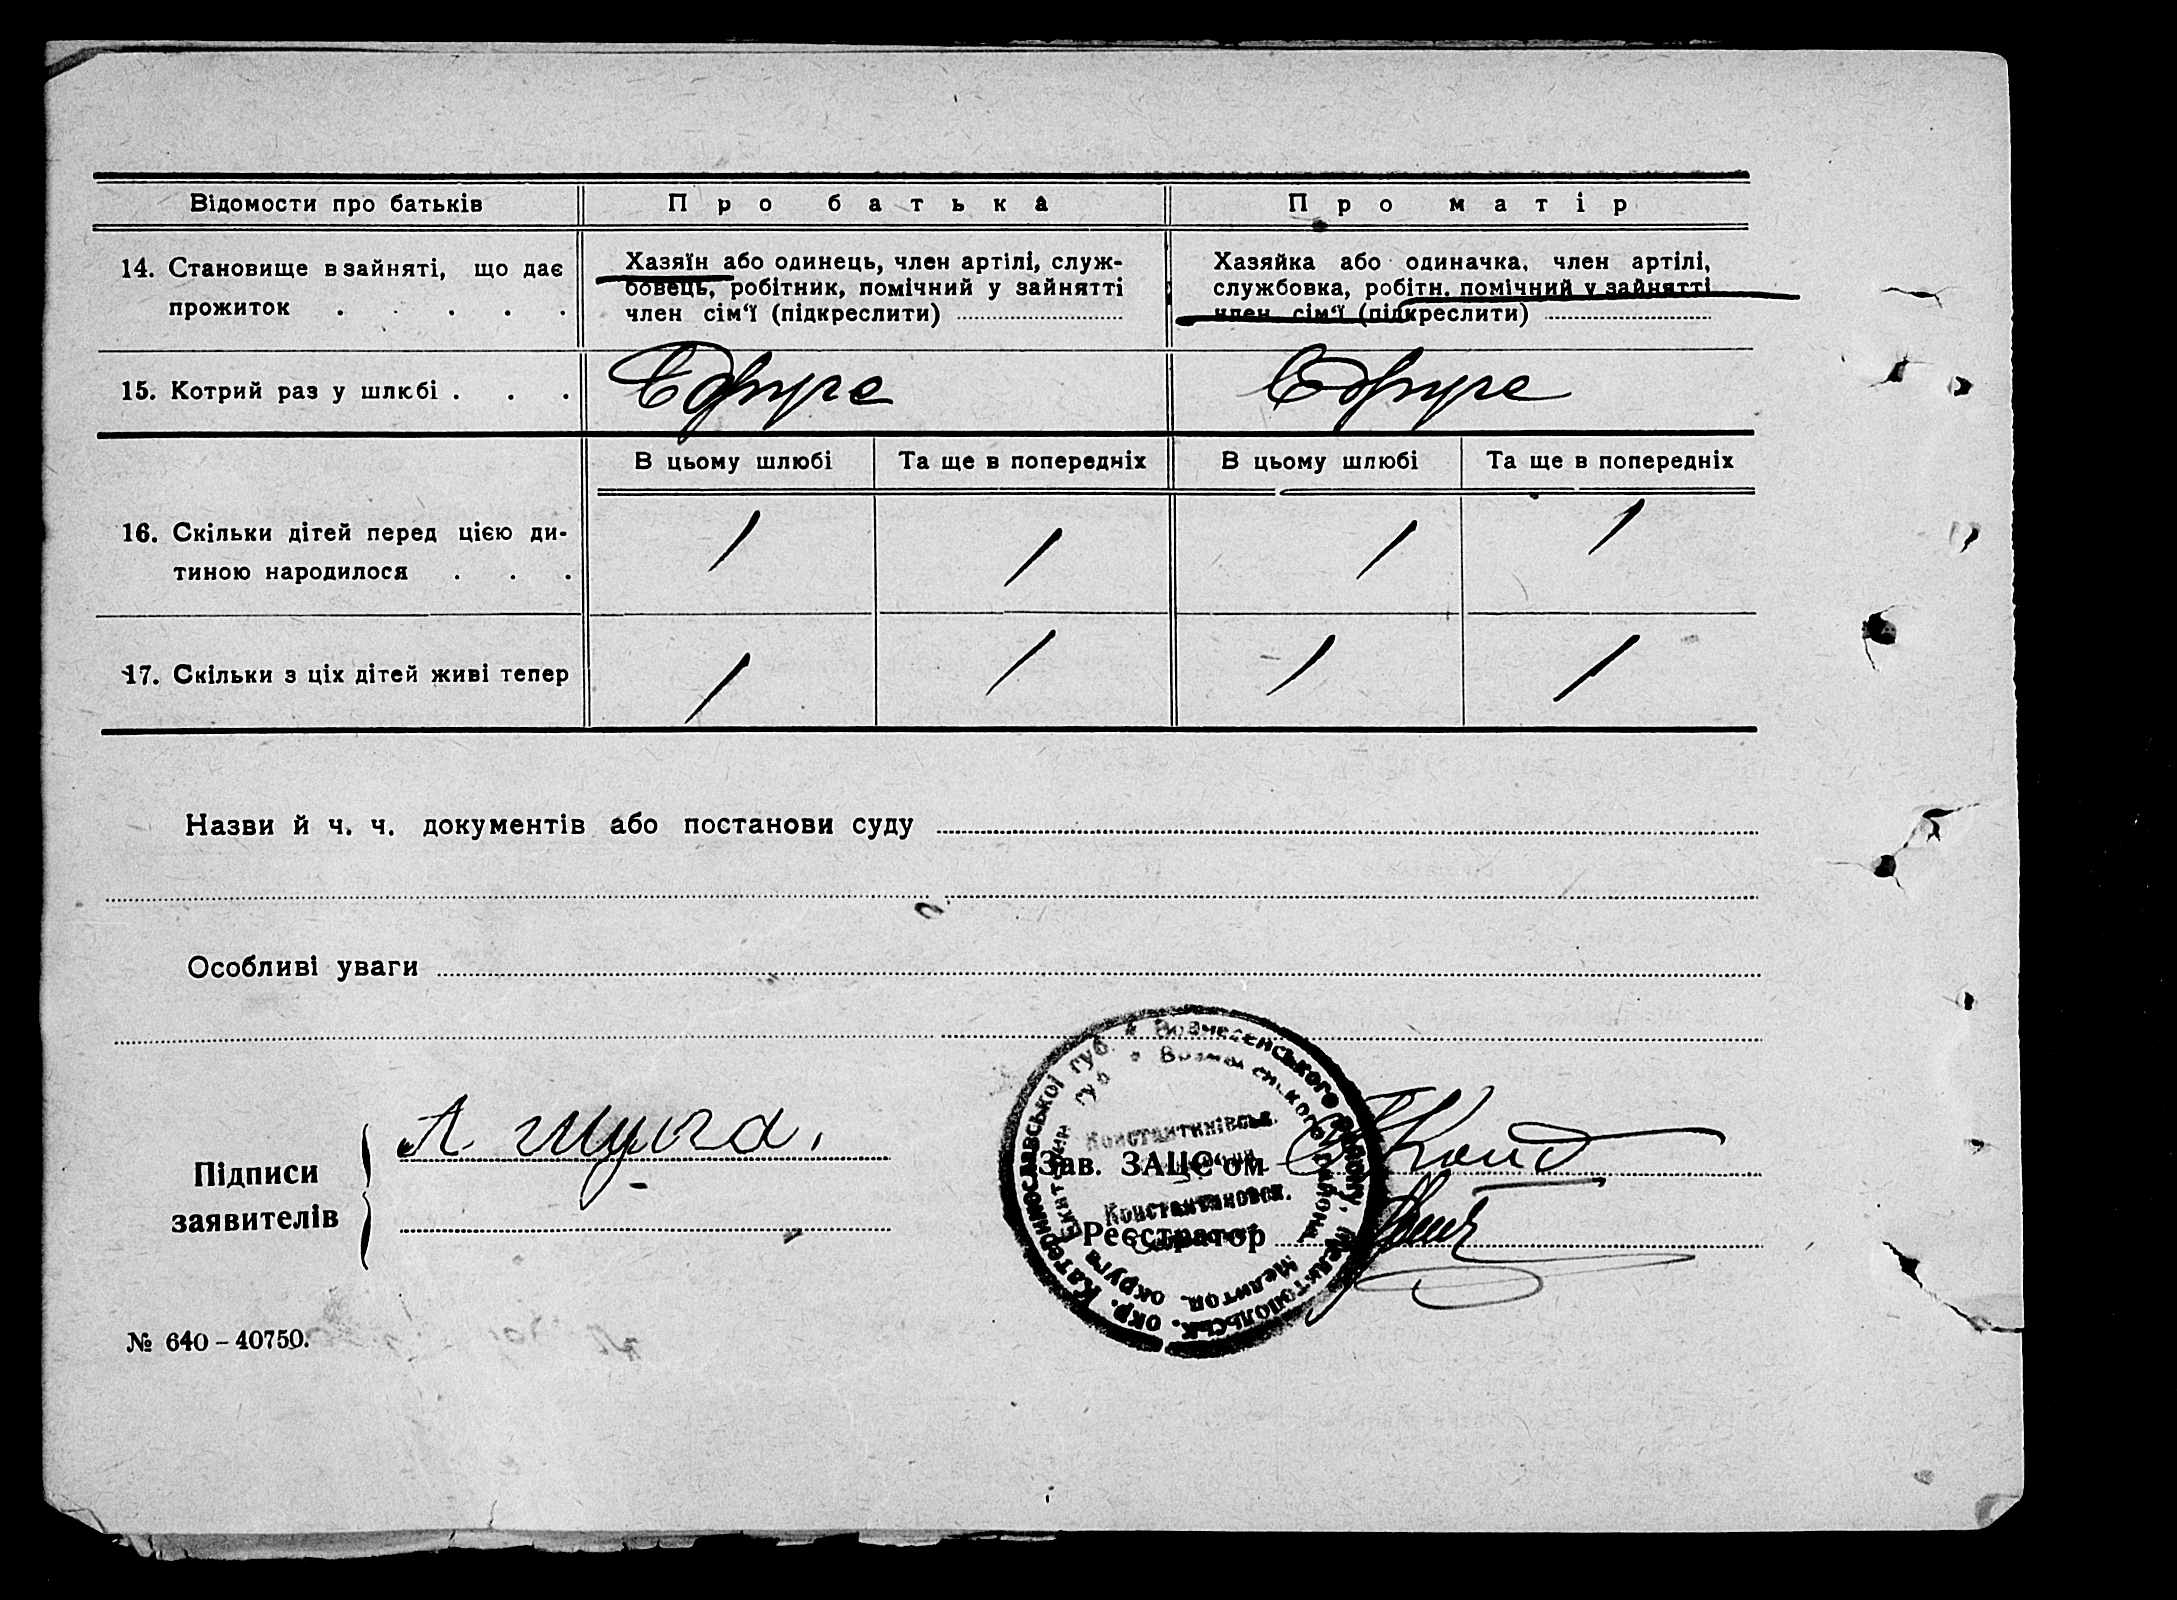 Відомости про батьків
Про батька
Про матір
14. Становище в зайняті, що дає
прожиток . . . . .
Хазяїн або одинець, член артілі, служ-
бовець, робітник, помічний у зайнятті
член сім'ї (підкреслити)
Хазяйка або одиначка, член артілі,
службовка, робітн. помічний у зайнятті
член сім'ї (підкреслити)
15. Котрий раз у шлюбі . . .
Вдруге
Вдруге
В цьому шлюбі
Та ще в попередніх
В цьому шлюбі
Та ще в попередніх
16. Скільки дітей перед цією ди-
тиною народилося . . .
/ / / /
17. Скільки з ціх дітей живі тепер
/ / / /
Назви й ч. ч. документів або постанови суду
Особливі уваги
Підписи
заявителів
Зав. ЗАЦС'ом
Реєстратор
Катеринославської губ. * Вознесенського району, Мелитопольськ. окр.
Константинівськ.
Константиновск.
№ 640 – 40750.